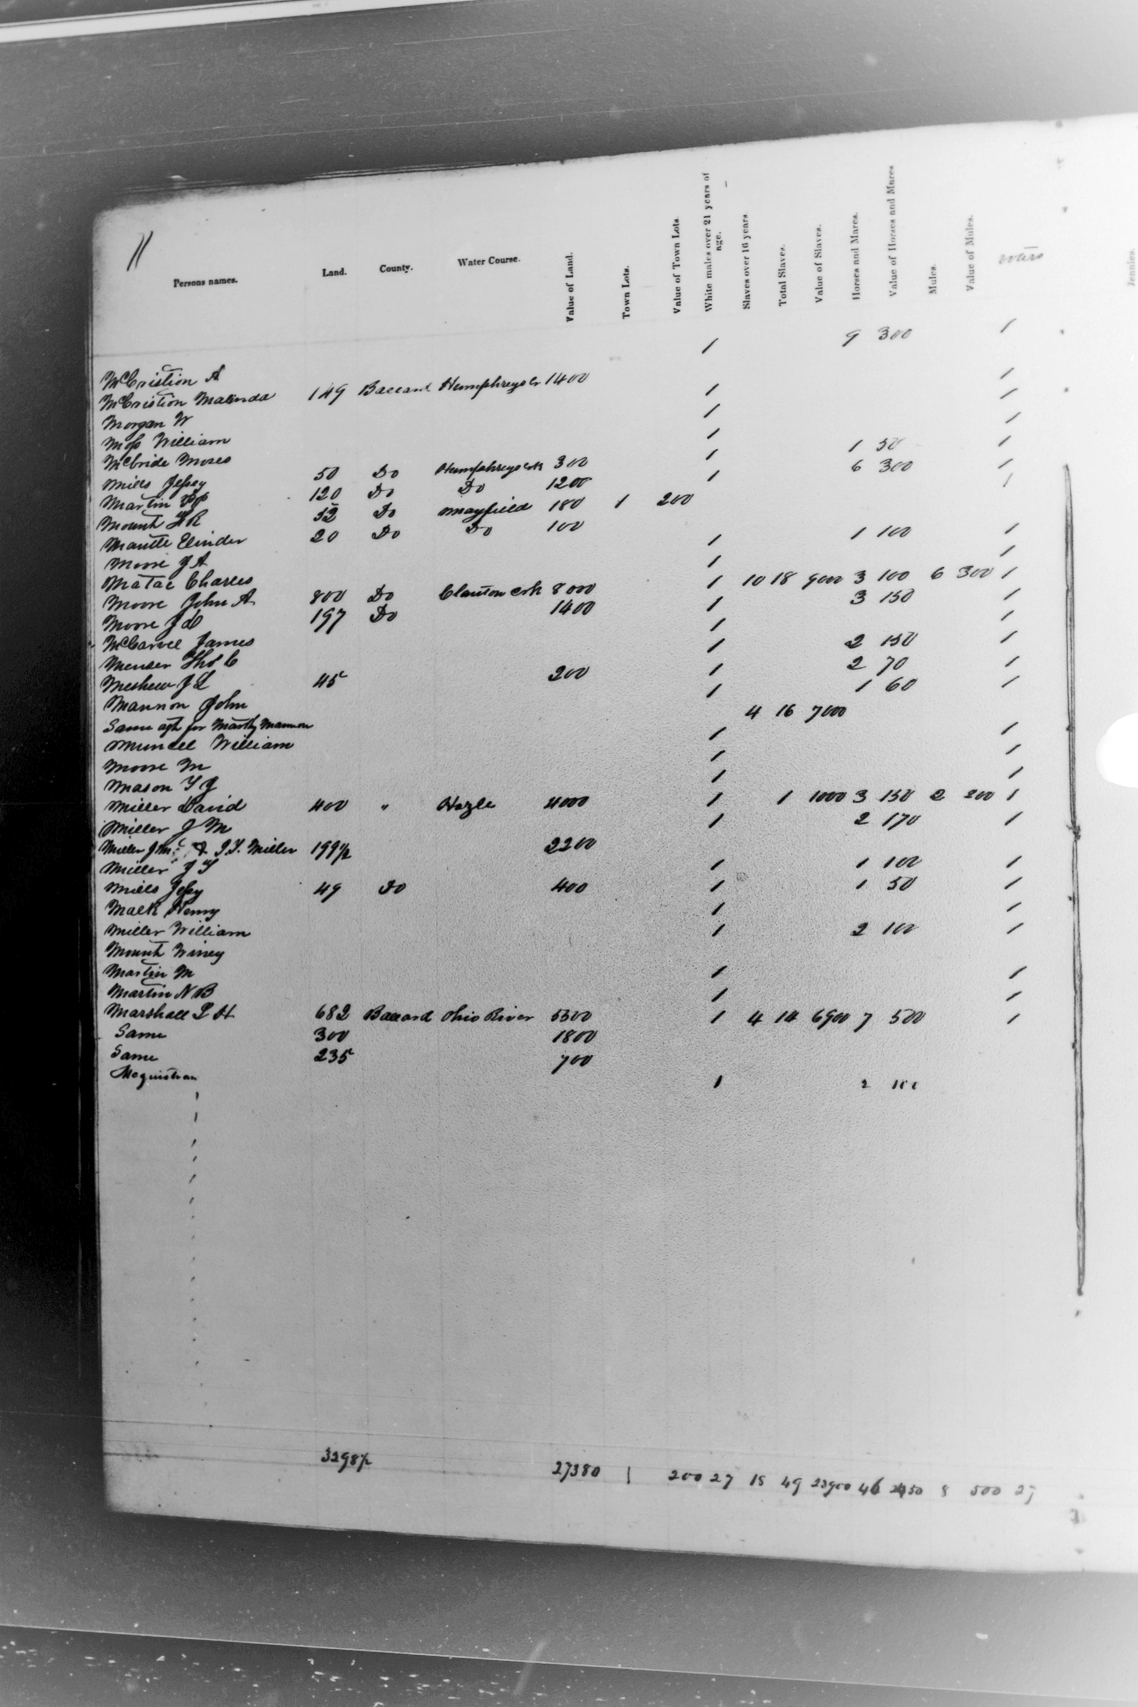 11
Persons names. Land. County. Water Course. Value of Land. Town Lots. Value of Town Lots. White males over 21 years of age. Slaves over 16 years. Total Slaves. Value of Slaves. Horses and Mares. Value of Horses and Mares Mules. Value of Mules. voters Jennies.
McCristion A 1 9 300 1
McCristion Malinda 149 Ballard Humphreys Cr 1400
Morgan W 1 1
Moss William 1 1
McBride Moses 1 1 50 1
Mills Jessy 50 Do Humphreys Crk 300 1 6 300 1
Martin 120 Do Do 1200 1 1
Mount H R 52 Do Mayfield 180 1 200
Mantle Elinder 20 Do Do 100
Moore J A 1 1 100 1
Matae Charles 1 1
Moore John A 800 Do Clanton Crk 8000 1 10 18 9000 3 100 6 300 1
Moore J D 197 Do 1400 1 3 150 1
McCarvel James 1 1
Menser Thos C 1 2 150 1
Meshew J L 45 200 1 2 70 1
Mannon John 1 1 60 1
Same agt for Martha Mannon 4 16 7000
Muncell William 1 1
Moore M 1 1
Mason T J 1 1
Miller David 400 " Hazle 4000 1 1 1000 3 150 2 200 1
Miller J M 1 2 170 1
Miller J M & J.T. Miller 199 1/2 2200
Miller J T 1 1 100 1
Mills Jessy 49 Do 400 1 1 50 1
Malk Henry 1 1
Miller William 1 2 100 1
Mount Winey
Martin M 1 1
Martin N B 1 1
Marshall L H 682 Ballard Ohio River 5300 1 4 14 6900 7 500 1
Same 300 1800
Same 235 700
Mcquistran 1 2 100
3298 1/2 27380 1 200 27 18 49 23900 46 2450 8 500 27